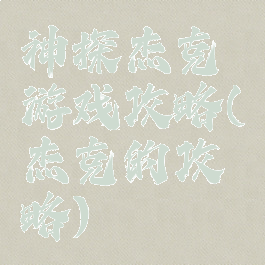 神探杰克
游戏攻略(
杰克的攻
略)